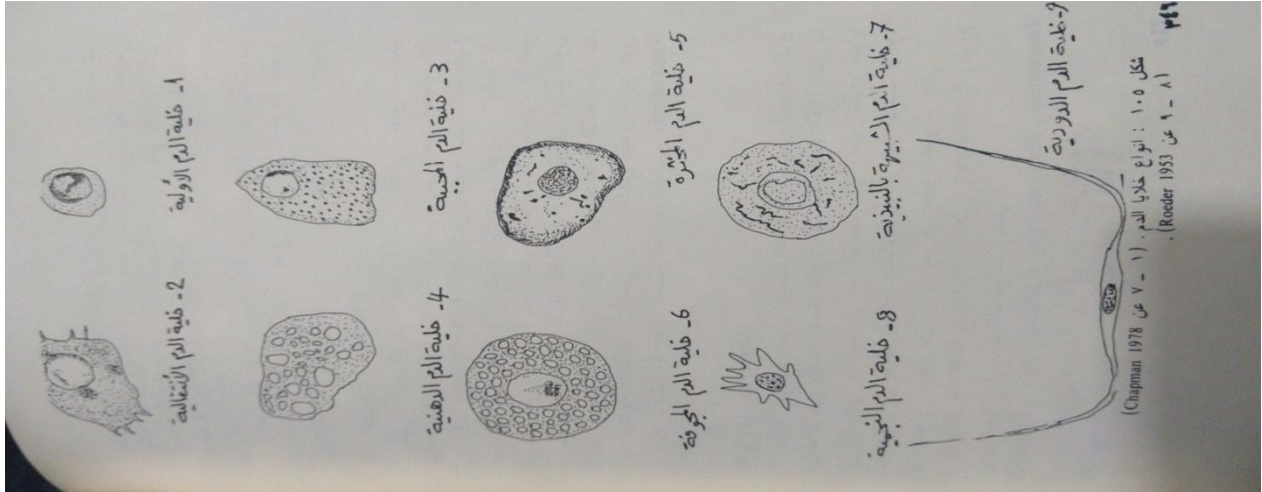 1- خلية الدم الأولية
2- خلية الدم الانتقالية
3- خلية الدم الحبيبية
4- خلية الدم الدهنية
5- خلية الدم المخثرة
6- خلية الدم المجوفة
7- خلية الدم الشبيهة بالبيذية
8- خلية الدم النجمية
9- خلية الدم الدودية
شكل ١٠٥ : انواع خلايا الدم. (١ - ٧ عن Chapman 1978)
(٨ - ٩ عن Roeder 1953).
٣٤٩